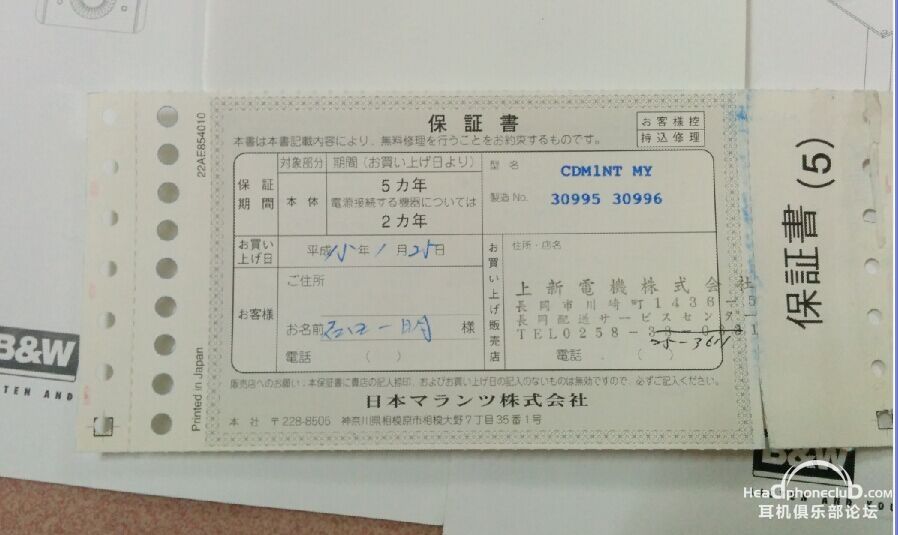 22AE854010
Printed in Japan
保証書
お客様控
持込修理
本書は本書記載内容により、無料修理を行うことをお約束するものです。
保証期間
対象部分
期間(お買い上げ日より)
本体
5カ年
電源接続する機器については
2カ年
型名
CDM1NT MY
製造No.
30995 30996
お買い上げ日
平成15年1月25日
お客様
ご住所
お名前
一明
様
電話 ( )
お買い上げ販売店
住所・店名
上新電機株式会社
長岡市川崎町1436-5
長岡配送サービスセンター
TEL0258-
25-3611
電話 ( )
販売店へのお願い、本保証書に貴店の記入捺印、およびお買い上げ日の記入のないものは無効ですので、必ずご記入ください。
日本マランツ株式会社
本社 〒228-8505 神奈川県相模原市相模大野7丁目35番1号
保証書(5)
B&W
TEN AND
B&W
TEN AND YOU
HeadphonecluD.com
耳机俱乐部论坛